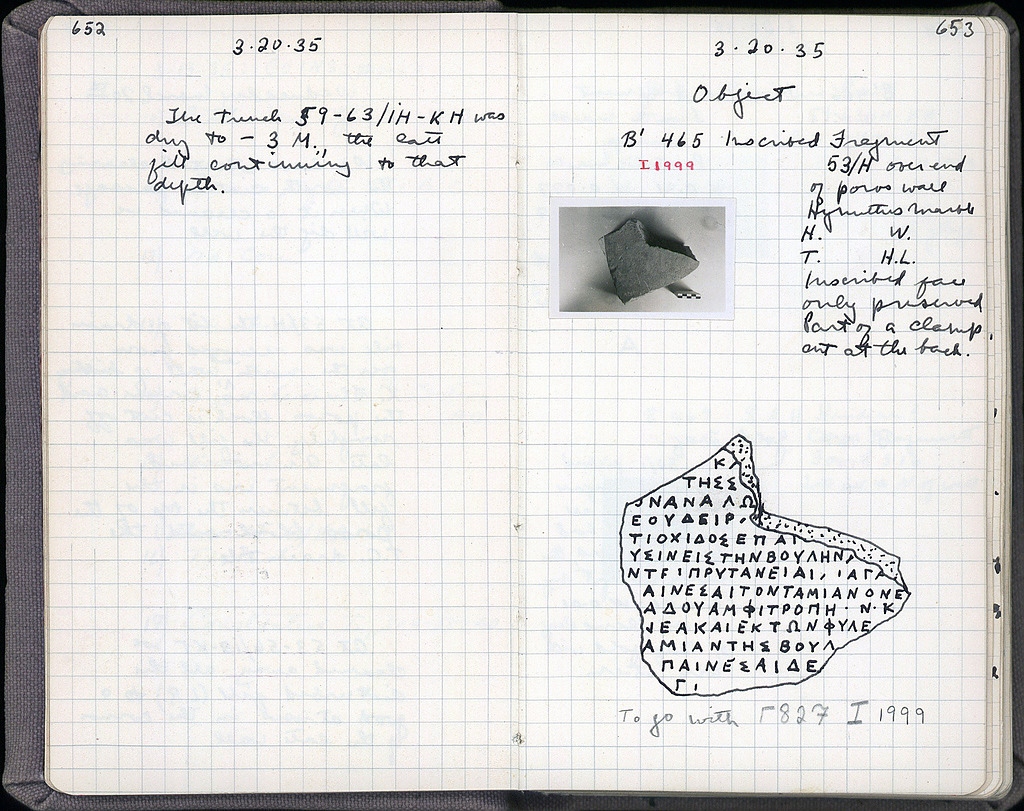 652
3·20·35
The trench 59-63/ΙΗ-ΚΗ was
dug to - 3 M., the late
fill continuing to that
depth.
653
3·20·35
Object
Β' 465 Inscribed Fragment
I 1999
53/Η over end
of poros wall
Hymettus marble
H. W.
T. H.L.
Inscribed face
only preserved
Part of a clamp
cut at the back.
Κ
ΤΗΣΣ
ΝΑΝΑΛΩ
ΕΟΥΔΕΙΡ
ΤΙΟΧΙΔΟΣΕΠΑΙ
ΥΣΙΝΕΙΣΤΗΝΒΟΥΛΗΝ
ΝΤΕΙΠΡΥΤΑΝΕΙΑΙ ΙΑΓΑ
ΑΙΝΕΣΑΙΤΟΝΤΑΜΙΑΝΟΝΕ
ΑΔΟΥΑΜΦΙΤΡΟΠΗ Ν Κ
ΝΕΑΚΑΙΕΚΤΩΝΦΥΛΕ
ΑΜΙΑΝΤΗΣΒΟΥΛ
ΠΑΙΝΕΣΑΙΔΕ
Γ Ι
To go with Γ827 I 1999